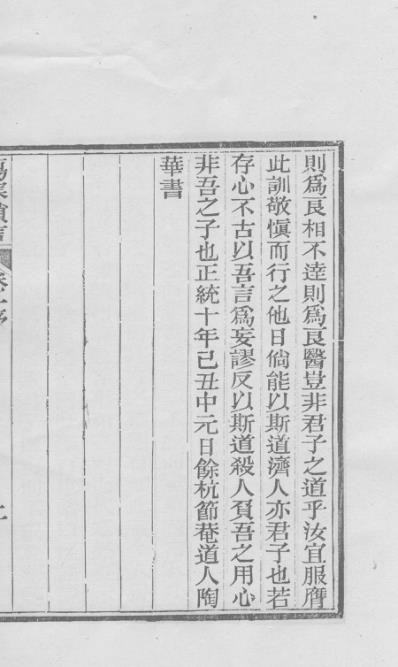 則爲良相不逹則爲良醫豈非君子之道乎汝宜服膺
此訓敬愼而行之他日倘能以斯道濟人亦君子也若
存心不古以吾言爲妄謬反以斯道殺人負吾之用心
非吾之子也正統十年己丑中元日餘杭節菴道人陶
華書